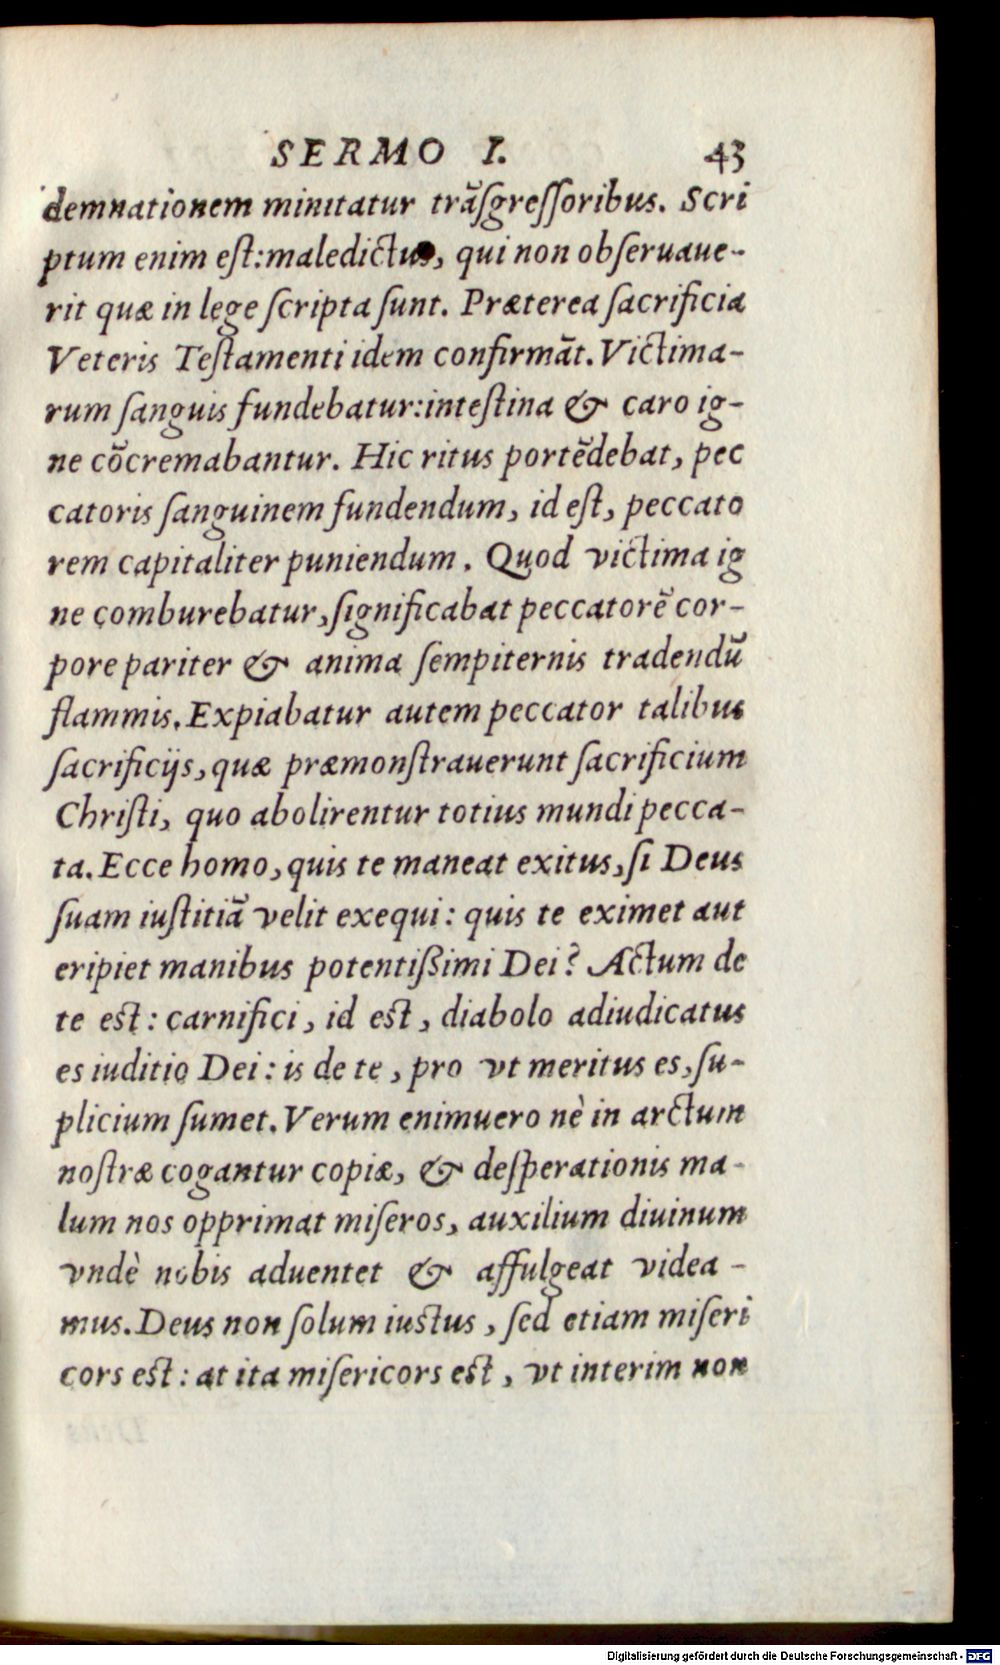 SERMO I. 43
demnationem minitatur trãſgreſſoribus. Scri
ptum enim eſt: maledictus, qui non obſeruaue-
rit quæ in lege ſcripta ſunt. Præterea ſacrificia
Veteris Teſtamenti idem confirmãt. Victima-
rum ſanguis fundebatur: inteſtina & caro ig-
ne cõcremabantur. Hic ritus portẽdebat, pec
catoris ſanguinem fundendum, id eſt, peccato
rem capitaliter puniendum. Quod victima ig
ne comburebatur, ſignificabat peccatorẽ cor-
pore pariter & anima ſempiternis tradendũ
flammis. Expiabatur autem peccator talibus
ſacrificijs, quæ præmonſtrauerunt ſacrificium
Chriſti, quo abolirentur totius mundi pecca-
ta. Ecce homo, quis te maneat exitus, ſi Deus
ſuam iuſtitiã velit exequi: quis te eximet aut
eripiet manibus potentißimi Dei? Actum de
te est: carnifici, id est, diabolo adiudicatus
es iuditio Dei: is de te, pro vt meritus es, ſu-
plicium ſumet. Verum enimuero nè in arctum
noſtræ cogantur copiæ, & deſperationis ma-
lum nos opprimat miſeros, auxilium diuinum
vndè nobis aduentet & affulgeat videa-
mus. Deus non ſolum iustus, ſed etiam miſeri
cors est: at ita miſericors est, vt interim non
Digitalisierung gefördert durch die Deutsche Forschungsgemeinschaft - DFG